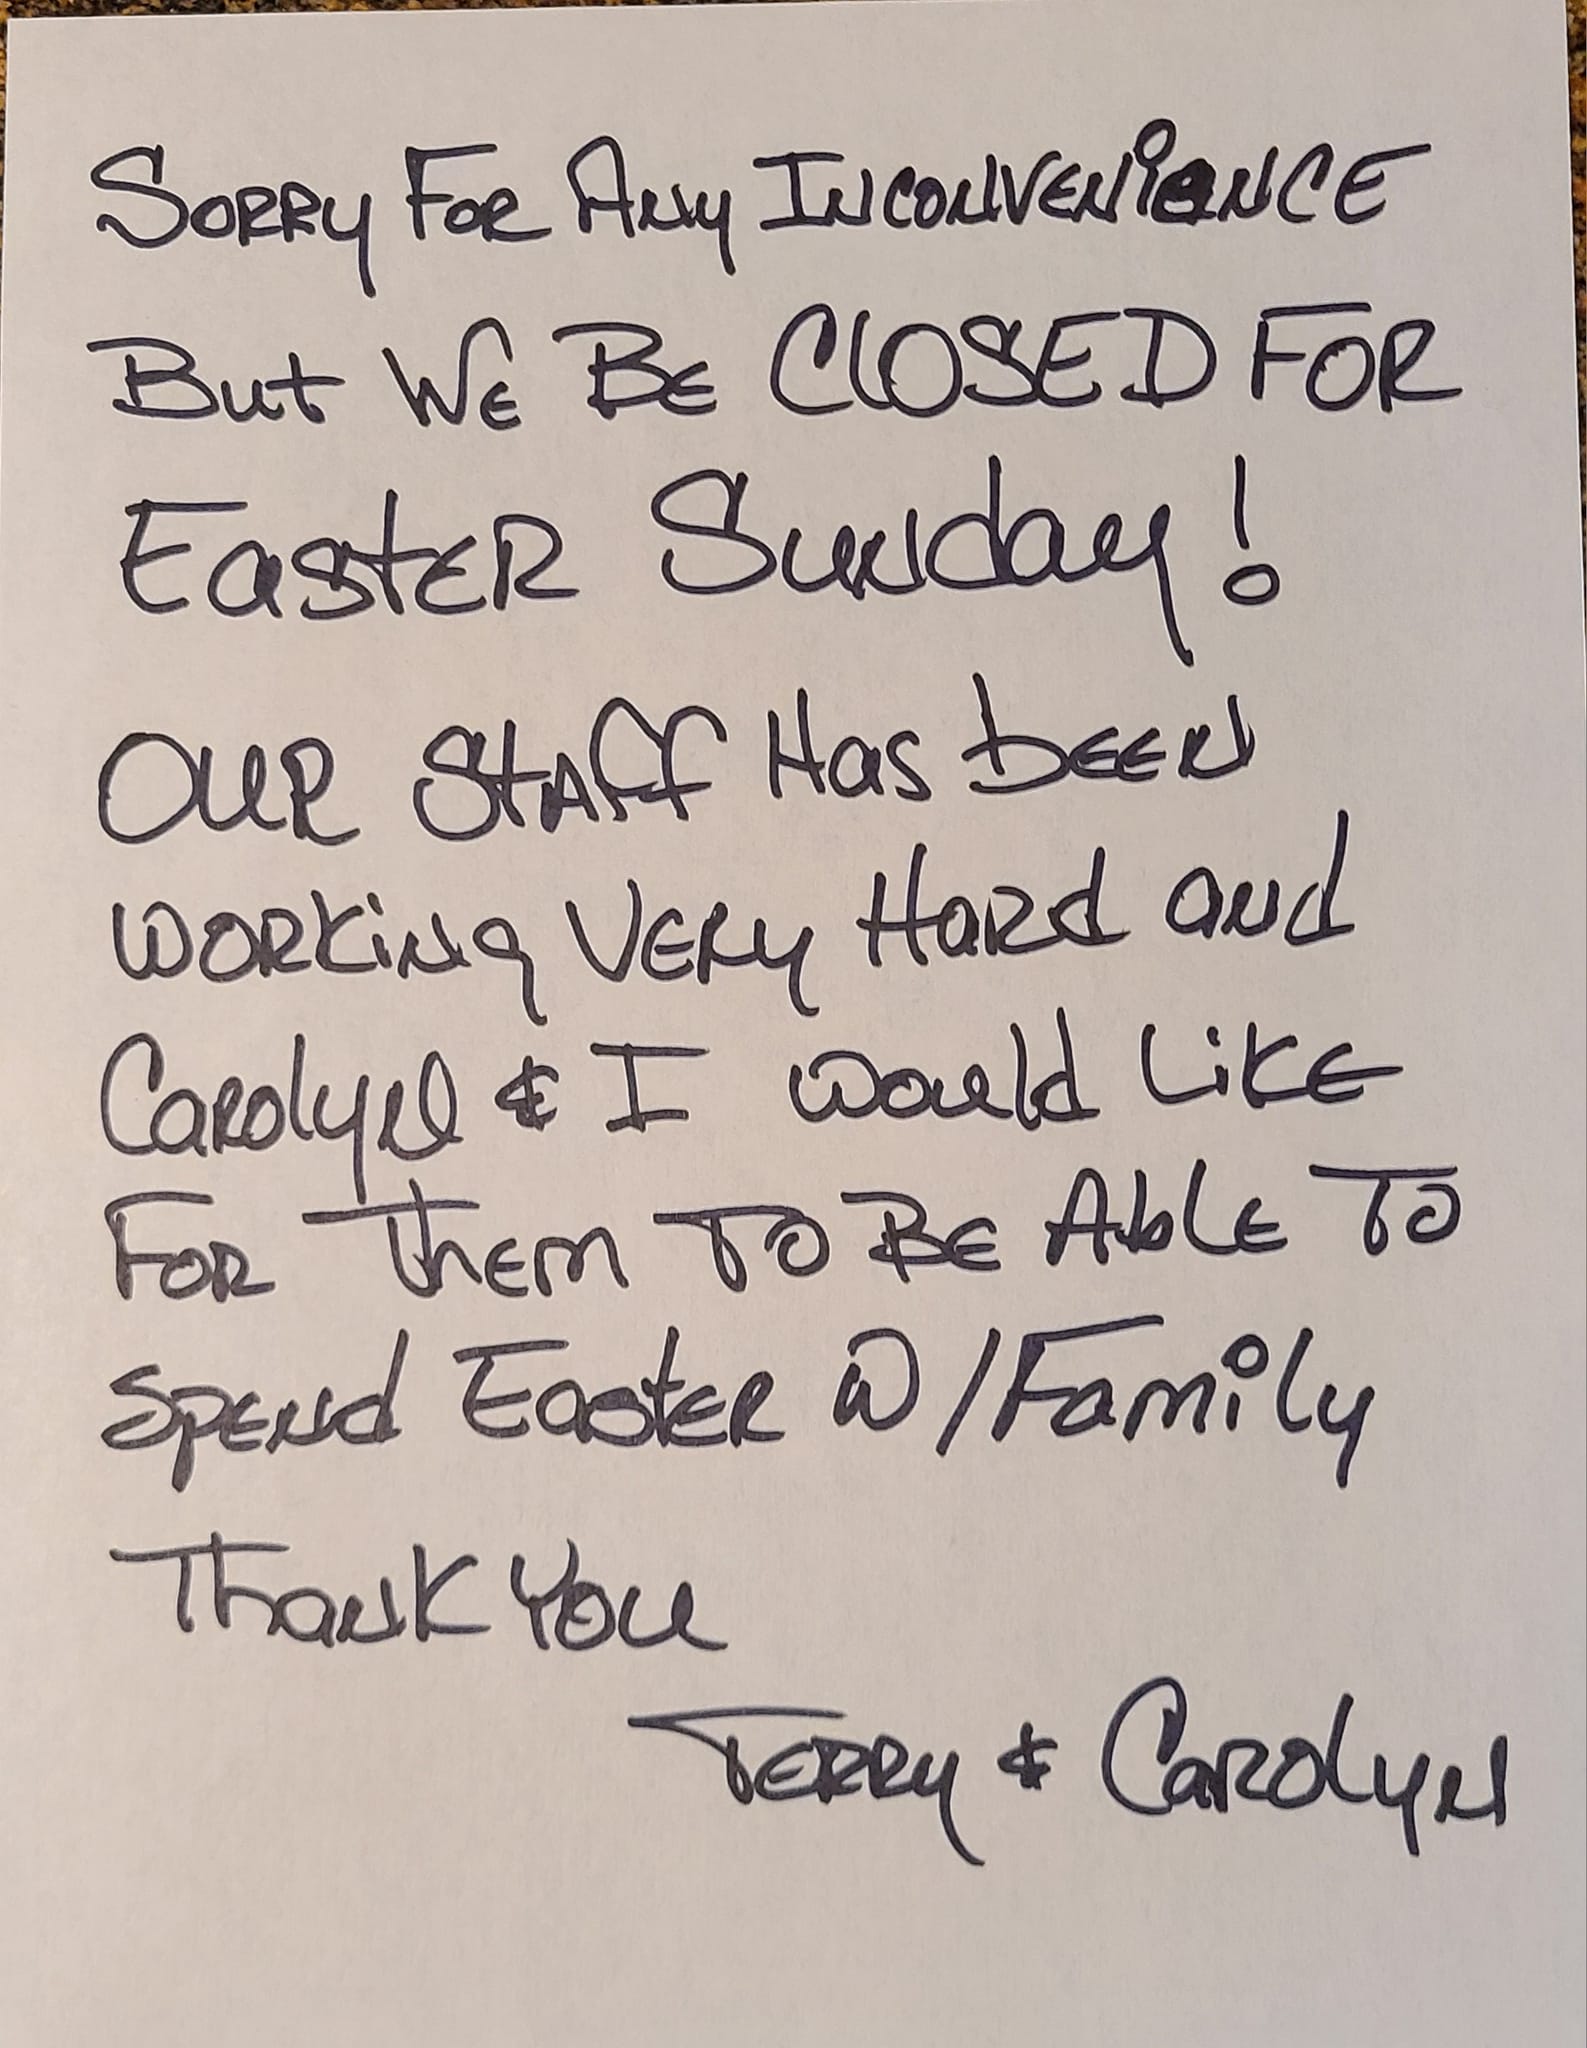 Sorry For Any Inconvenience
But We Be CLOSED FOR
Easter Sunday!
Our Staff Has been
working Very Hard and
Carolyn & I would Like
For Them To Be Able To
Spend Easter W/Family
Thank You
Terry & Carolyn